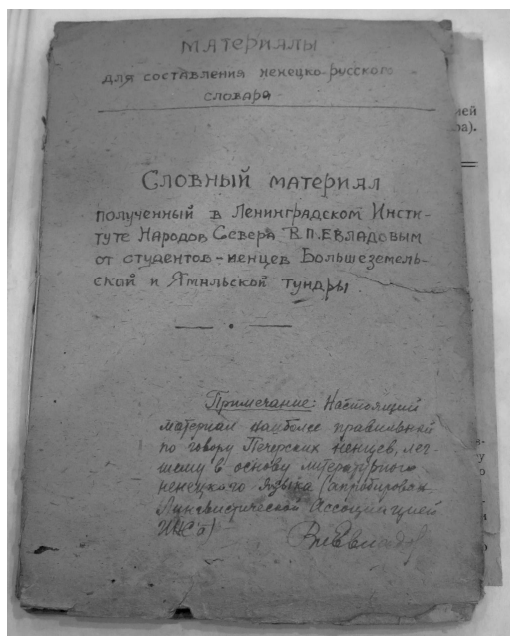 МАТЕРИАЛЫ
для составления ненецко-русского
словаря
Словный материал
полученный в Ленинградском Инсти-
туте Народов Севера В.П.ЕВЛАДОВЫМ
от студентов-ненцев Большеземель-
ской и Ямальской тундры.
Примечание: Настоящий
материал наиболее правильный
по говору Печорских ненцев, лег-
шему в основу литературного
ненецкого языка (апробирован
Лингвистической Ассоциацией
ВлЕвладов
ией
ра).